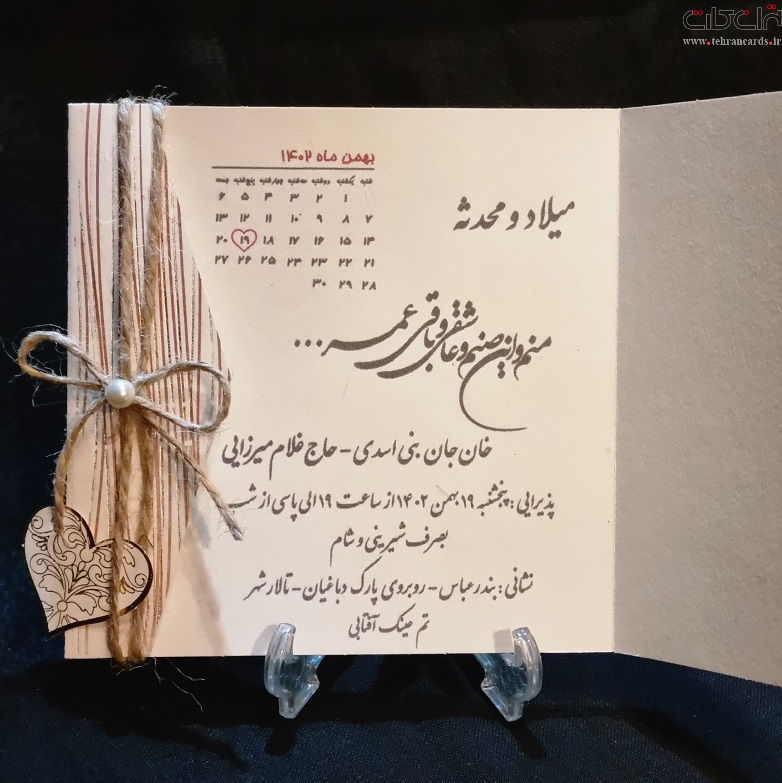 تهران کارت
www.tehrancards.ir
بهمن ماه ۱۴۰۲
شنبه یکشنبه دوشنبه سه‌شنبه چهارشنبه پنج‌شنبه جمعه
۱ ۲ ۳ ۴ ۵ ۶
۷ ۸ ۹ ۱۰ ۱۱ ۱۲ ۱۳
۱۴ ۱۵ ۱۶ ۱۷ ۱۸ ۱۹ ۲۰
۲۱ ۲۲ ۲۳ ۲۴ ۲۵ ۲۶ ۲۷
۲۸ ۲۹ ۳۰
میلاد و محدثه
منم و این صنم و عاشقی و باقی عمر...
خان جان بنی اسدی - حاج غلام میرزایی
پذیرایی : پنجشنبه ۱۹ بهمن ۱۴۰۲ از ساعت ۱۹ الی پاسی از شب
بصرف شیرینی و شام
نشانی : بندرعباس - روبروی پارک دباغیان - تالار شهر
تم عینک آفتابی